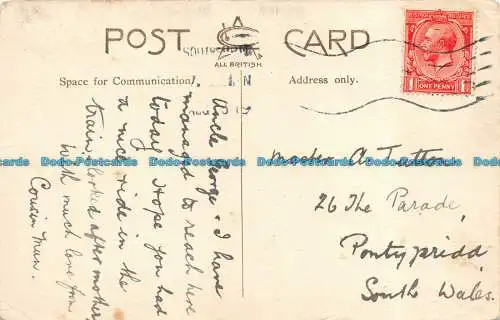 POST CARD
ALL BRITISH
Space for Communication.
Address only.
ONE PENNY
Uncle George & I have
managed to reach here
today. Hope you had
a nice ride in the
train & looked after mother,
With much love from
Cousin
Master A. Tutton
26 The Parade,
Pontypridd
South Wales.
Dodo-Postcards Dodo-Postcards Dodo-Postcards Dodo-Postcards